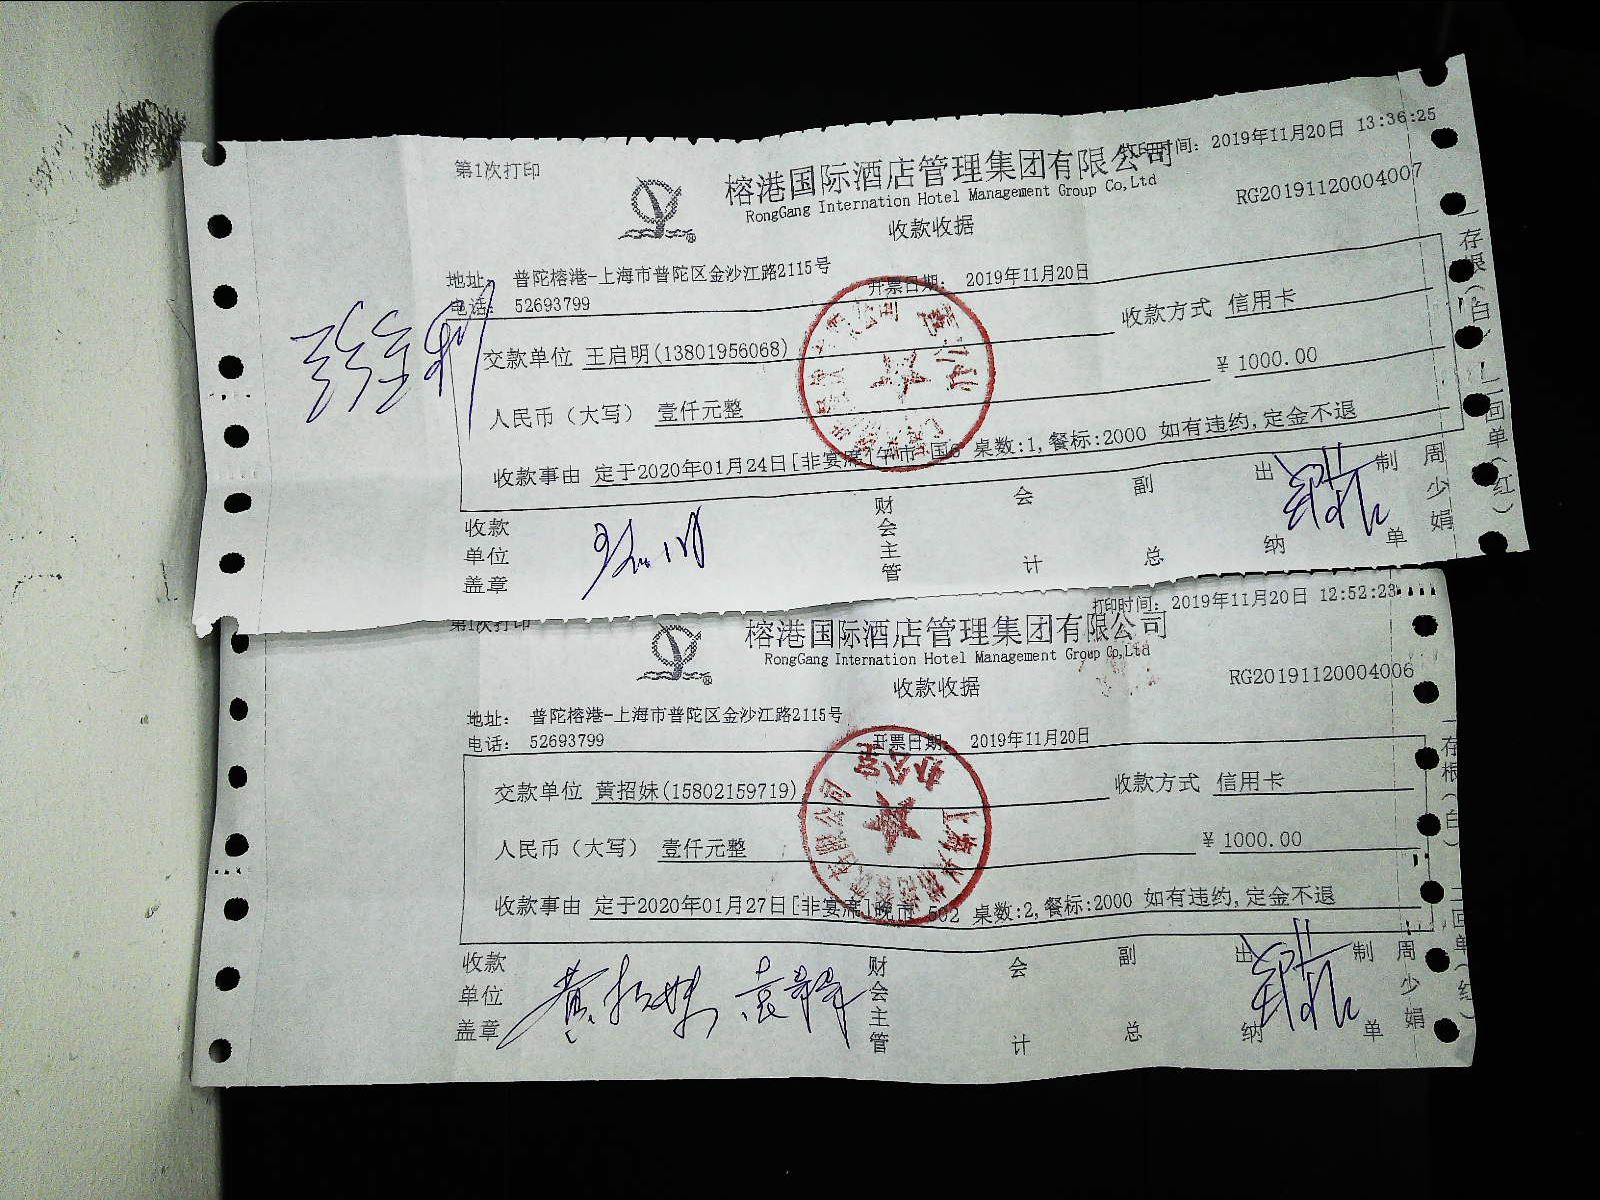 第1次打印
打印时间: 2019年11月20日 13:36:25
榕港国际酒店管理集团有限公司
RongGang Internation Hotel Management Group Co,Ltd
RG20191120004007
收款收据
地址: 普陀榕港-上海市普陀区金沙江路2115号
电话: 52693799
开票日期: 2019年11月20日
交款单位 王启明(13801956068)
收款方式 信用卡
人民币（大写） 壹仟元整
¥ 1000.00
收款事由 定于2020年01月24日[非宴席]午市 国6 桌数:1,餐标:2000 如有违约,定金不退
收款单位盖章
财会主管
会计
副总
出纳
制单
周少娟
一存根(白)
二回单(红)
第1次打印
打印时间: 2019年11月20日 12:52:23
榕港国际酒店管理集团有限公司
RongGang Internation Hotel Management Group Co,Ltd
RG20191120004006
收款收据
地址: 普陀榕港-上海市普陀区金沙江路2115号
电话: 52693799
开票日期: 2019年11月20日
交款单位 黄招妹(15802159719)
收款方式 信用卡
人民币（大写） 壹仟元整
¥ 1000.00
收款事由 定于2020年01月27日[非宴席]晚市 502 桌数:2,餐标:2000 如有违约,定金不退
收款单位盖章
黄招妹
财会主管
会计
副总
出纳
制单
周少娟
一存根(白)
二回单(红)
办公室